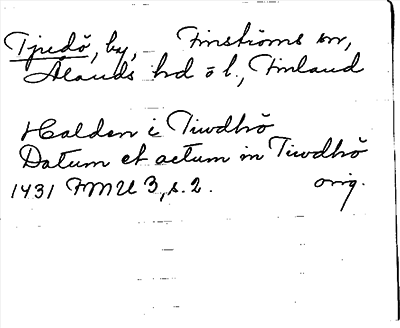 Tjudö, by, Finströms sn,
Ålands hd o l., Finland
Halden i Tiwdhö
Datum et actum in Tiwdhö
1431 FMU 3, s. 2. orig.